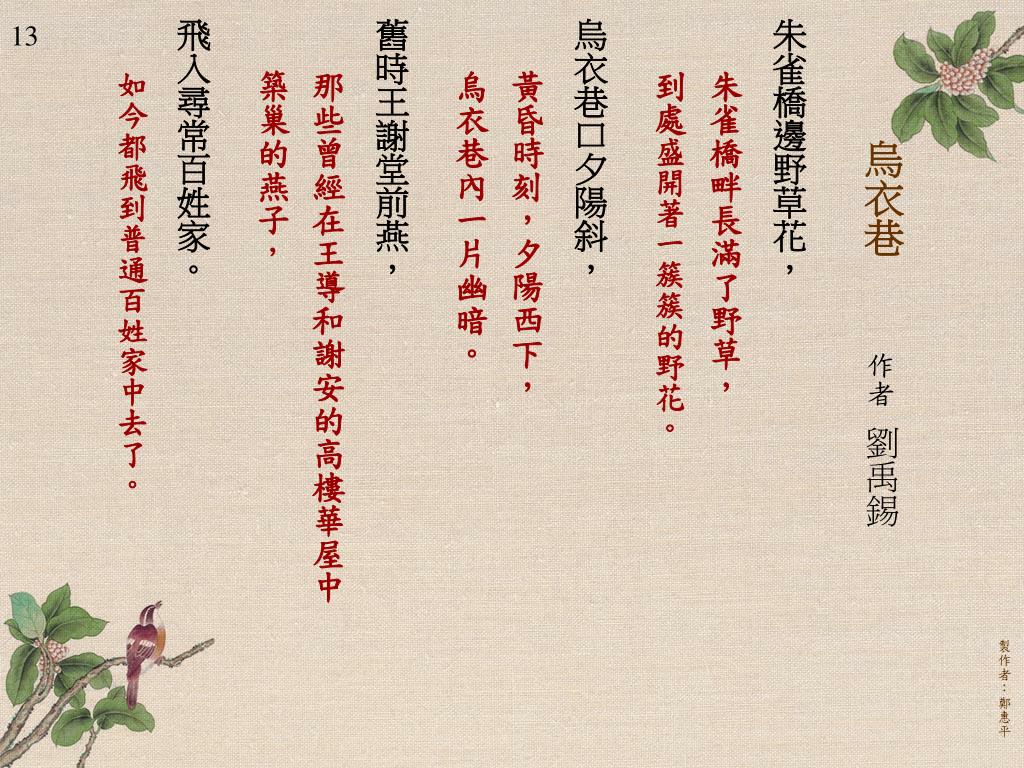 烏衣巷
作者 劉禹錫
朱雀橋邊野草花，
朱雀橋畔長滿了野草，
到處盛開著一簇簇的野花。
烏衣巷口夕陽斜，
黃昏時刻，夕陽西下，
烏衣巷內一片幽暗。
舊時王謝堂前燕，
那些曾經在王導和謝安的高樓華屋中
築巢的燕子，
飛入尋常百姓家。
如今都飛到普通百姓家中去了。
製作者：鄭惠平
13